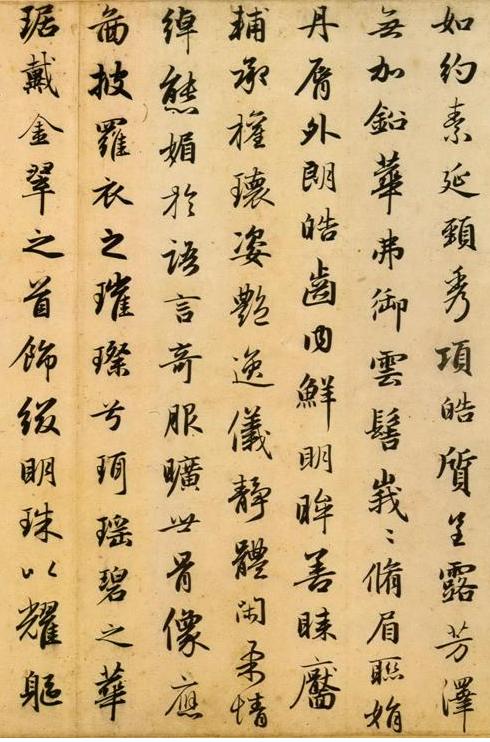 如約素延頸秀項皓質呈露芳澤
無加鉛華弗御雲髻峩〻脩眉聯娟
丹脣外朗皓齒內鮮明眸善睞靨
輔承權瓌姿艷逸儀靜體閑柔情
綽態媚於語言奇服曠世骨像應
啚披羅衣之璀璨兮珥瑶碧之華
琚戴金翠之首飾綴明珠以耀軀